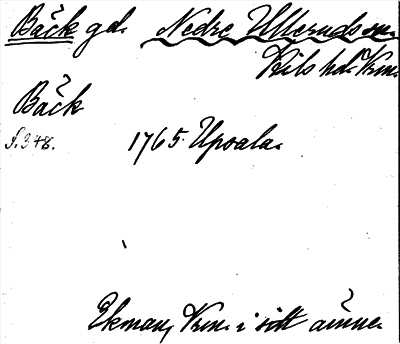 Bäck gd. Nedre Ulleruds sn.
Kils hd. Vrm.
Bäck
s. 348. 1765 Upsala.
Ekman, Vrm. i sitt ämne